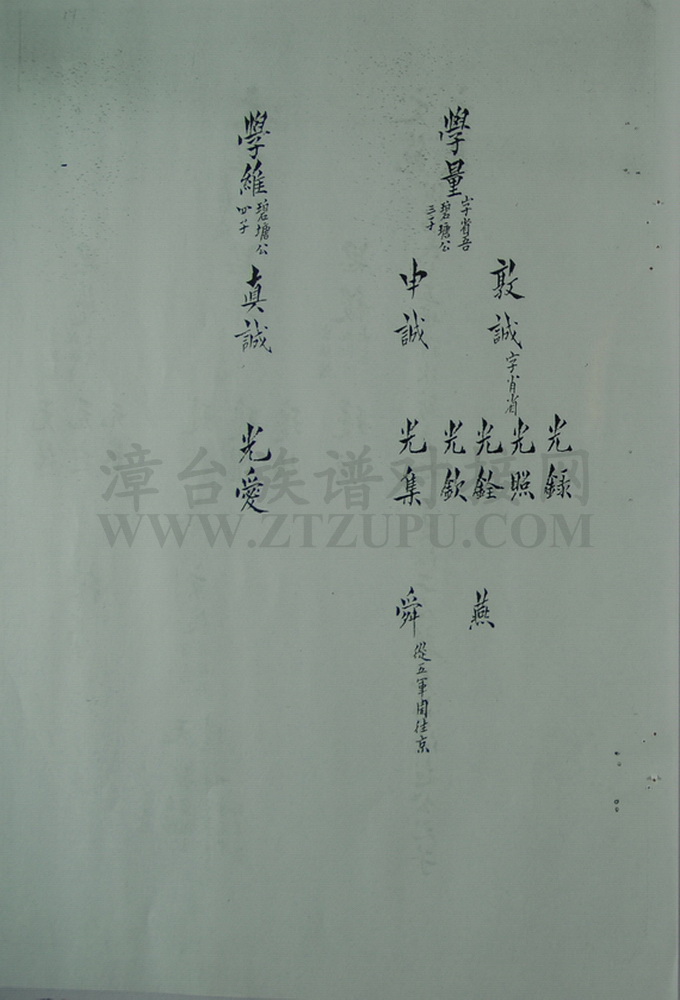 學量
字省吾
碧塘公
三子
敦誠
字肖省
申誠
光錄
光照
光銓
光欽
光集
燕
舜
從五軍閏往京
學維
碧塘公
四子
真誠
光愛
漳台族谱对接网
WWW.ZTZUPU.COM